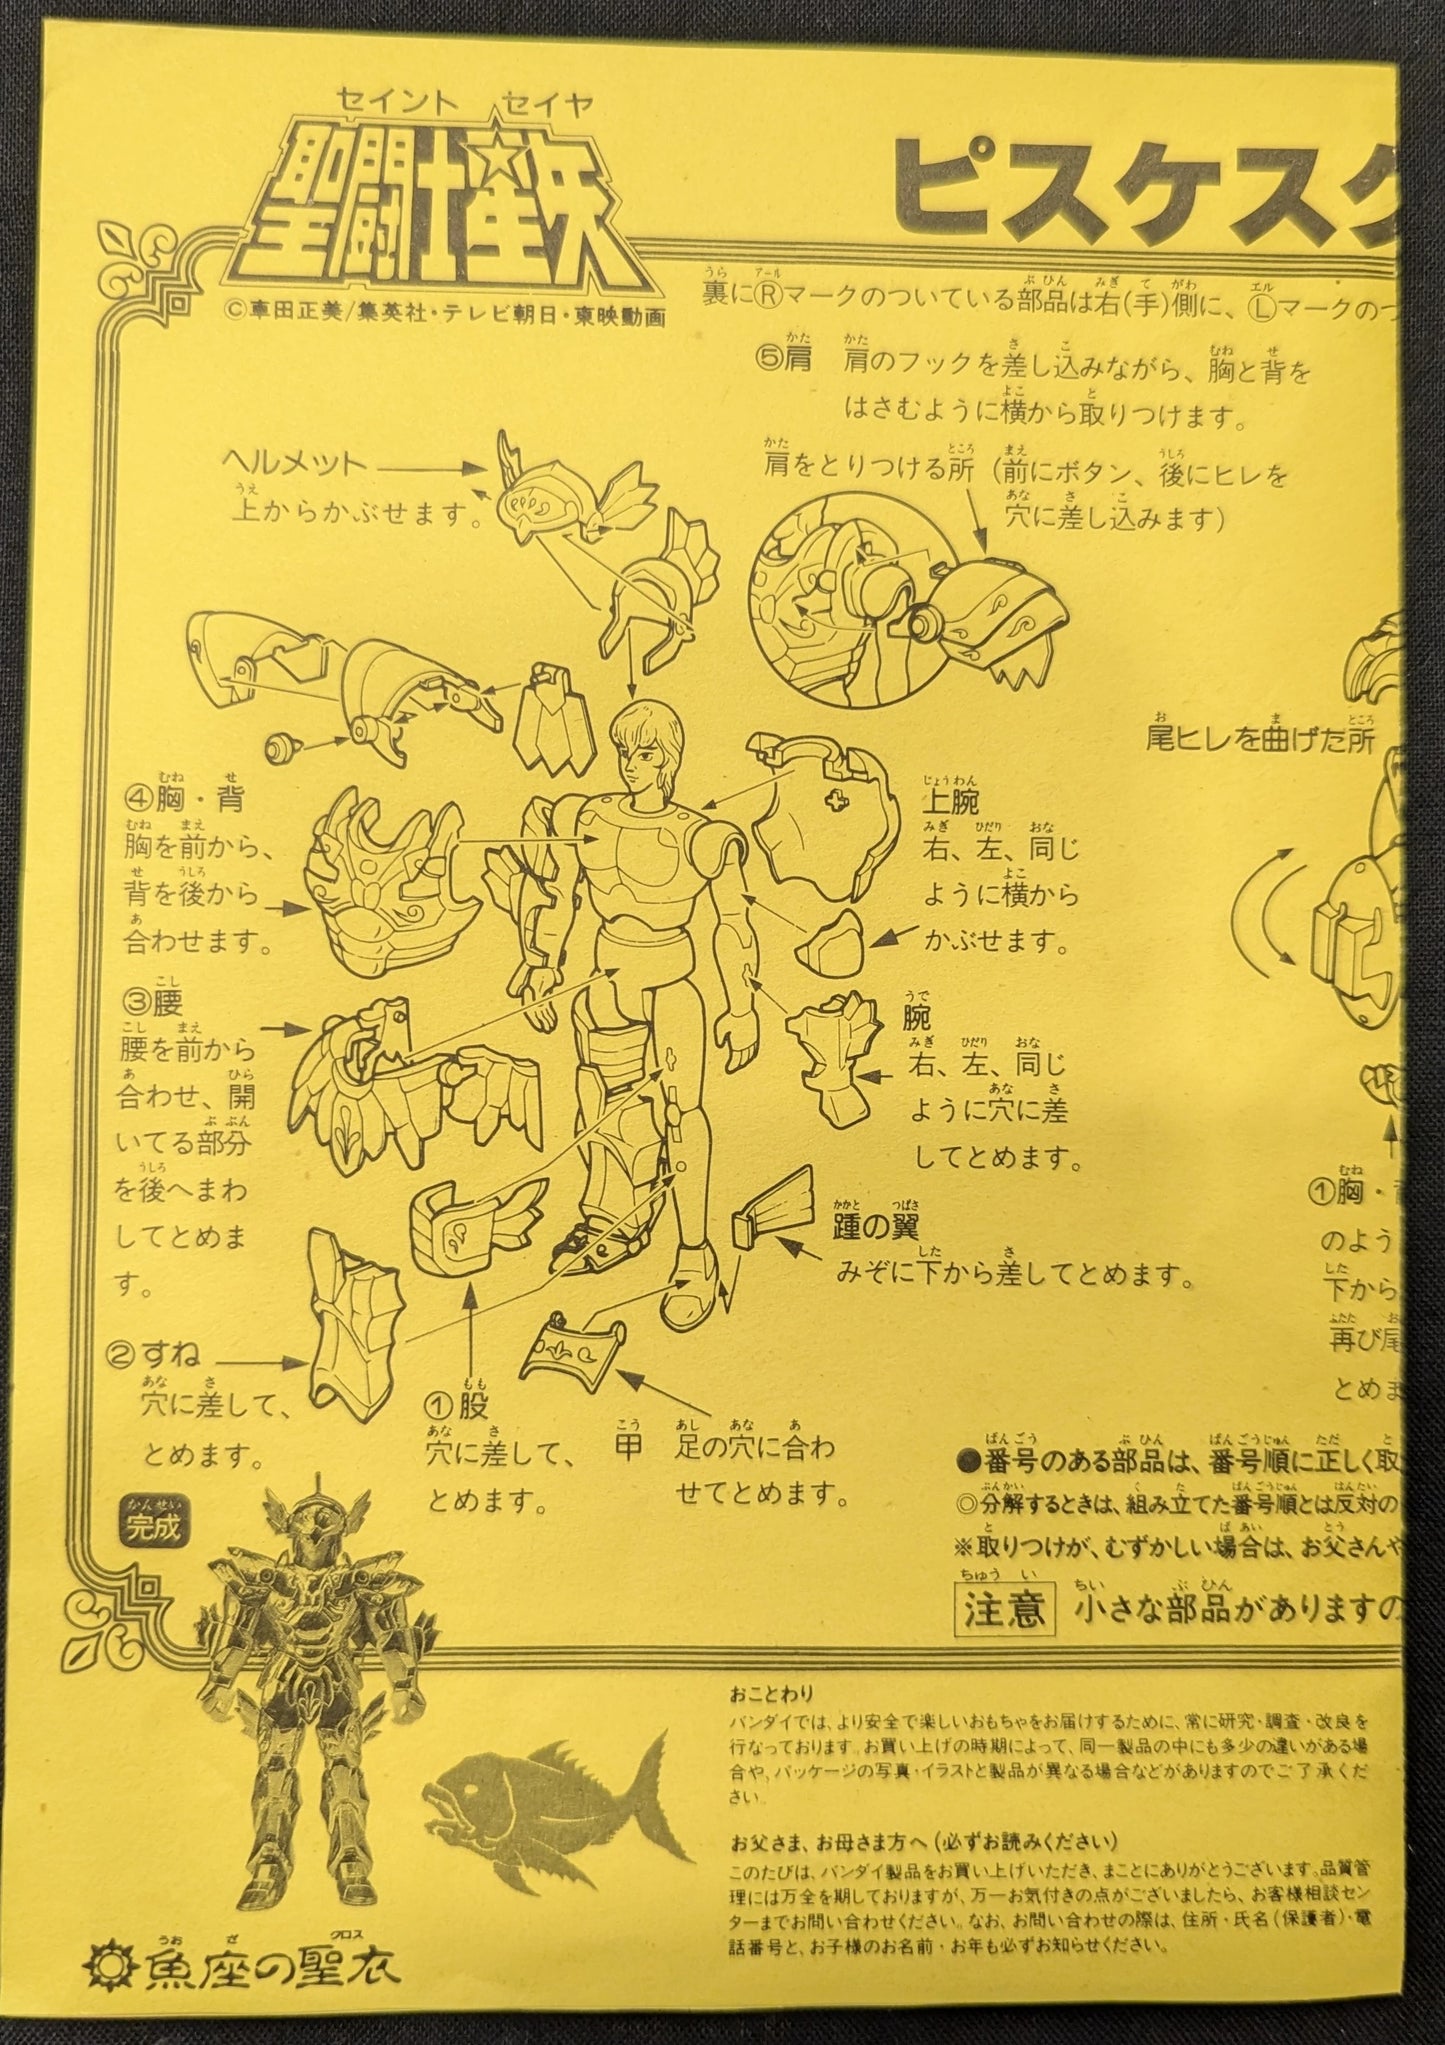 セイント セイヤ
聖闘士星矢
©車田正美/集英社・テレビ朝日・東映動画
ピスケスク
裏にⓇマークのついている部品は右(手)側に、Ⓛマークのつ
⑤肩 肩のフックを差し込みながら、胸と背を
はさむように横から取りつけます。
肩をとりつける所 (前にボタン、後にヒレを
穴に差し込みます)
ヘルメット
上からかぶせます。
尾ヒレを曲げた所
④胸・背
胸を前から、
背を後から
合わせます。
上腕
右、左、同じ
ように横から
かぶせます。
③腰
腰を前から
合わせ、開
いてる部分
を後へまわ
してとめま
す。
腕
右、左、同じ
ように穴に差
してとめます。
踵の翼
みぞに下から差してとめます。
①胸・
のよう
下から
再び尾
とめま
②すね
穴に差して、
とめます。
①股
穴に差して、
とめます。
甲 足の穴に合わ
せてとめます。
●番号のある部品は、番号順に正しく取
◎分解するときは、組み立てた番号順とは反対の
※取りつけが、むずかしい場合は、お父さんや
注意 小さな部品がありますの
完成
おことわり
バンダイでは、より安全で楽しいおもちゃをお届けするために、常に研究・調査・改良を
行なっております。お買い上げの時期によって、同一製品の中にも多少の違いがある場
合や、パッケージの写真・イラストと製品が異なる場合などがありますのでご了承くだ
さい。
お父さま、お母さま方へ(必ずお読みください)
このたびは、バンダイ製品をお買い上げいただき、まことにありがとうございます。品質管
理には万全を期しておりますが、万一お気付きの点がございましたら、お客様相談セン
ターまでお問い合わせください。なお、お問い合わせの際は、住所・氏名(保護者)・電
話番号と、お子様のお名前・お年も必ずお知らせください。
魚座の聖衣